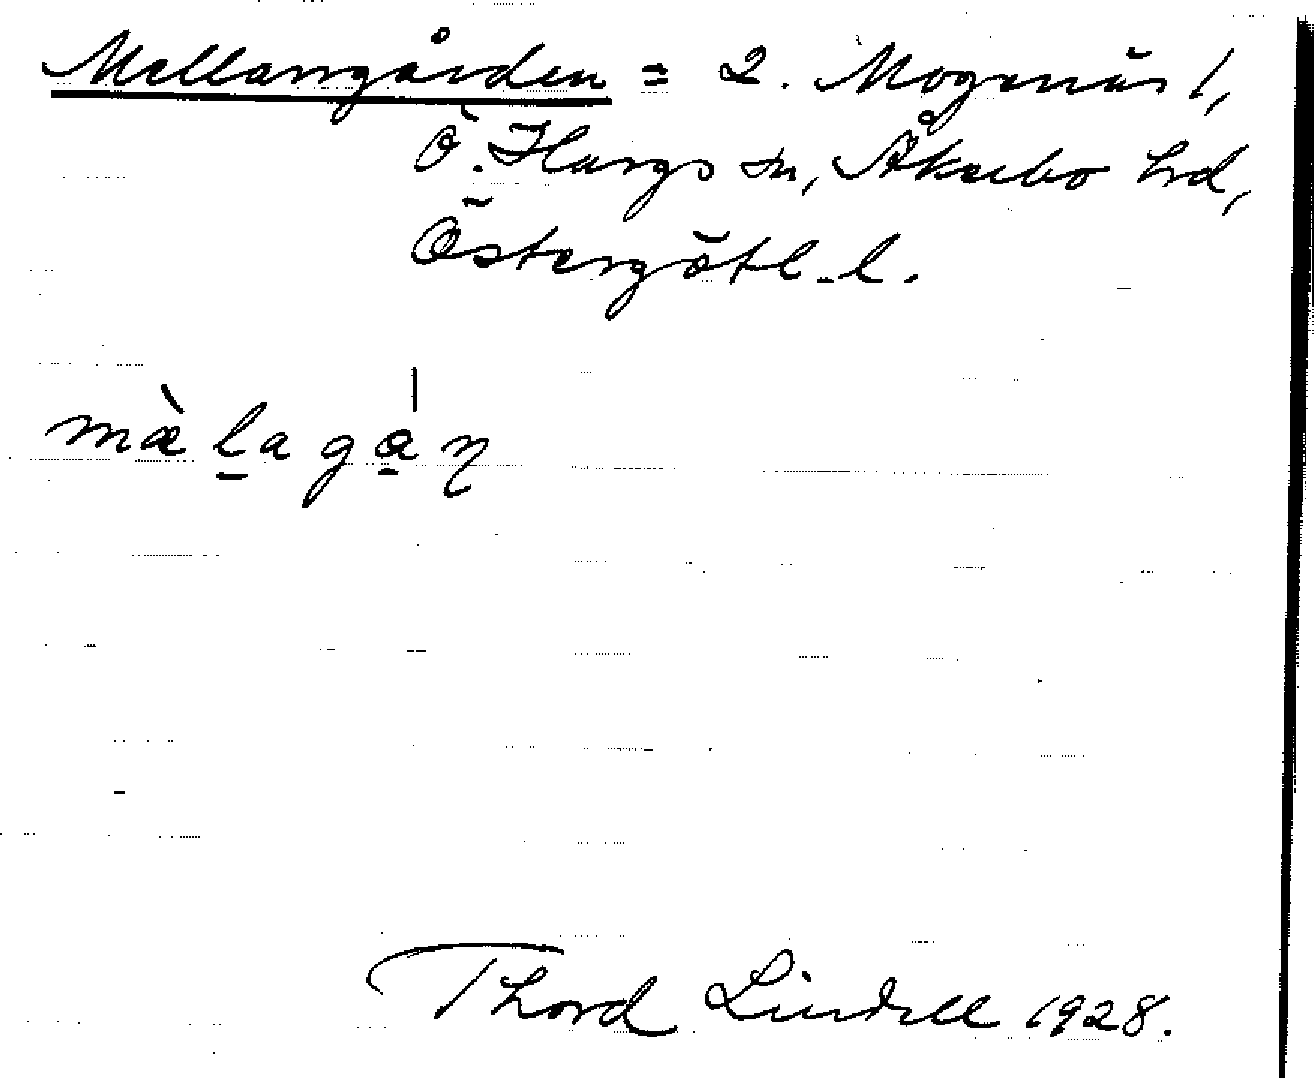 Mellangården = 2. Mogenäs 1,
Ö. Hargs sn, Åkerbo hrd,
Östergötl. l.
mæ̀l̲aga̲̍ꞃ
Thord Lindell 1928.